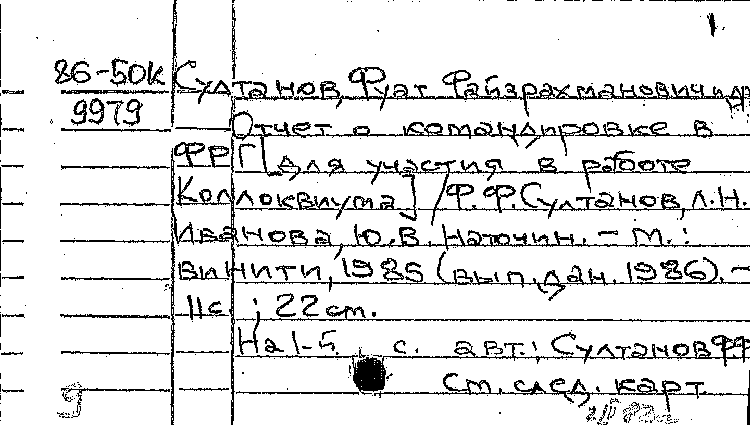 1.
86-50К Султанов, Фуат Файзрахманович и др
9979 Отчет о командировке в
ФРГ [для участия в работе
Коллоквиума] / Ф.Ф. Султанов, Л.Н.
Иванова, Ю.В. Наточин. – М. :
ВИНИТИ, 1985 (вып. дан. 1986). –
11 с ; 22 см.
На 1-5 с. авт.: Султанов Ф Ф
См. след. карт.